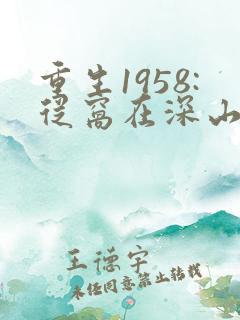 重生1958:
从窝在深山
王德宇
未经同意禁止转载